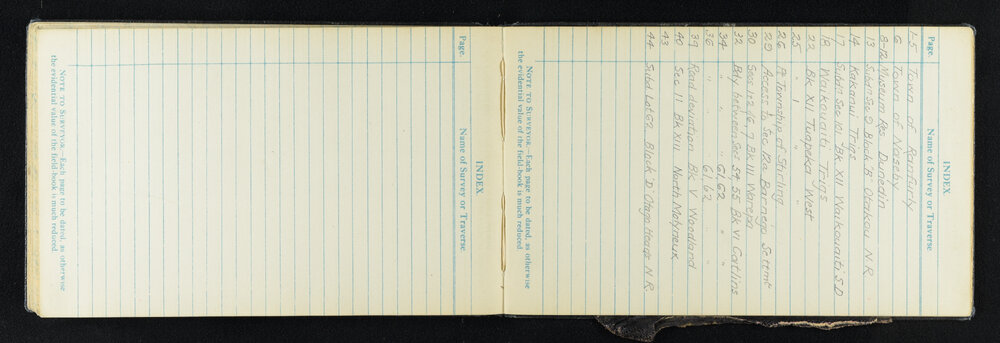 INDEX.
Page. Name of Survey or Traverse
1-5 Town of Ranfurly
6 Town of Naseby
8-12 Museum Res Dunedin
13 Subdn Sec 9 Block B Otakou N.R.
14 Kakanui Trigs
17 Subdn Sec 10 Bk XII Waikouaiti S.D
18 Waikouaiti Trigs
22 Bk XII Tuapeka West
25 " 1 "
26 Pt Township of Stirling
29 Access to Sec 12a Barnego Settmt
30 Secs 1 & 2 Bk III Warepa
32 Bdy between Secs 54, 55 Bk VI Catlins
34 " " " 61, 62 " "
36 " " 61, 62 "
39 Road deviation Bk V Woodland
40 Sec 11 Bk XIII North Molyneux
43
44 Subd Lot 69 Block D Otago Heads N.R.
NOTE TO SURVEYOR.—Each page to be dated, as otherwise
the evidential value of the field-book is much reduced.
INDEX.
Page. Name of Survey or Traverse
NOTE TO SURVEYOR.—Each page to be dated, as otherwise
the evidential value of the field-book is much reduced.